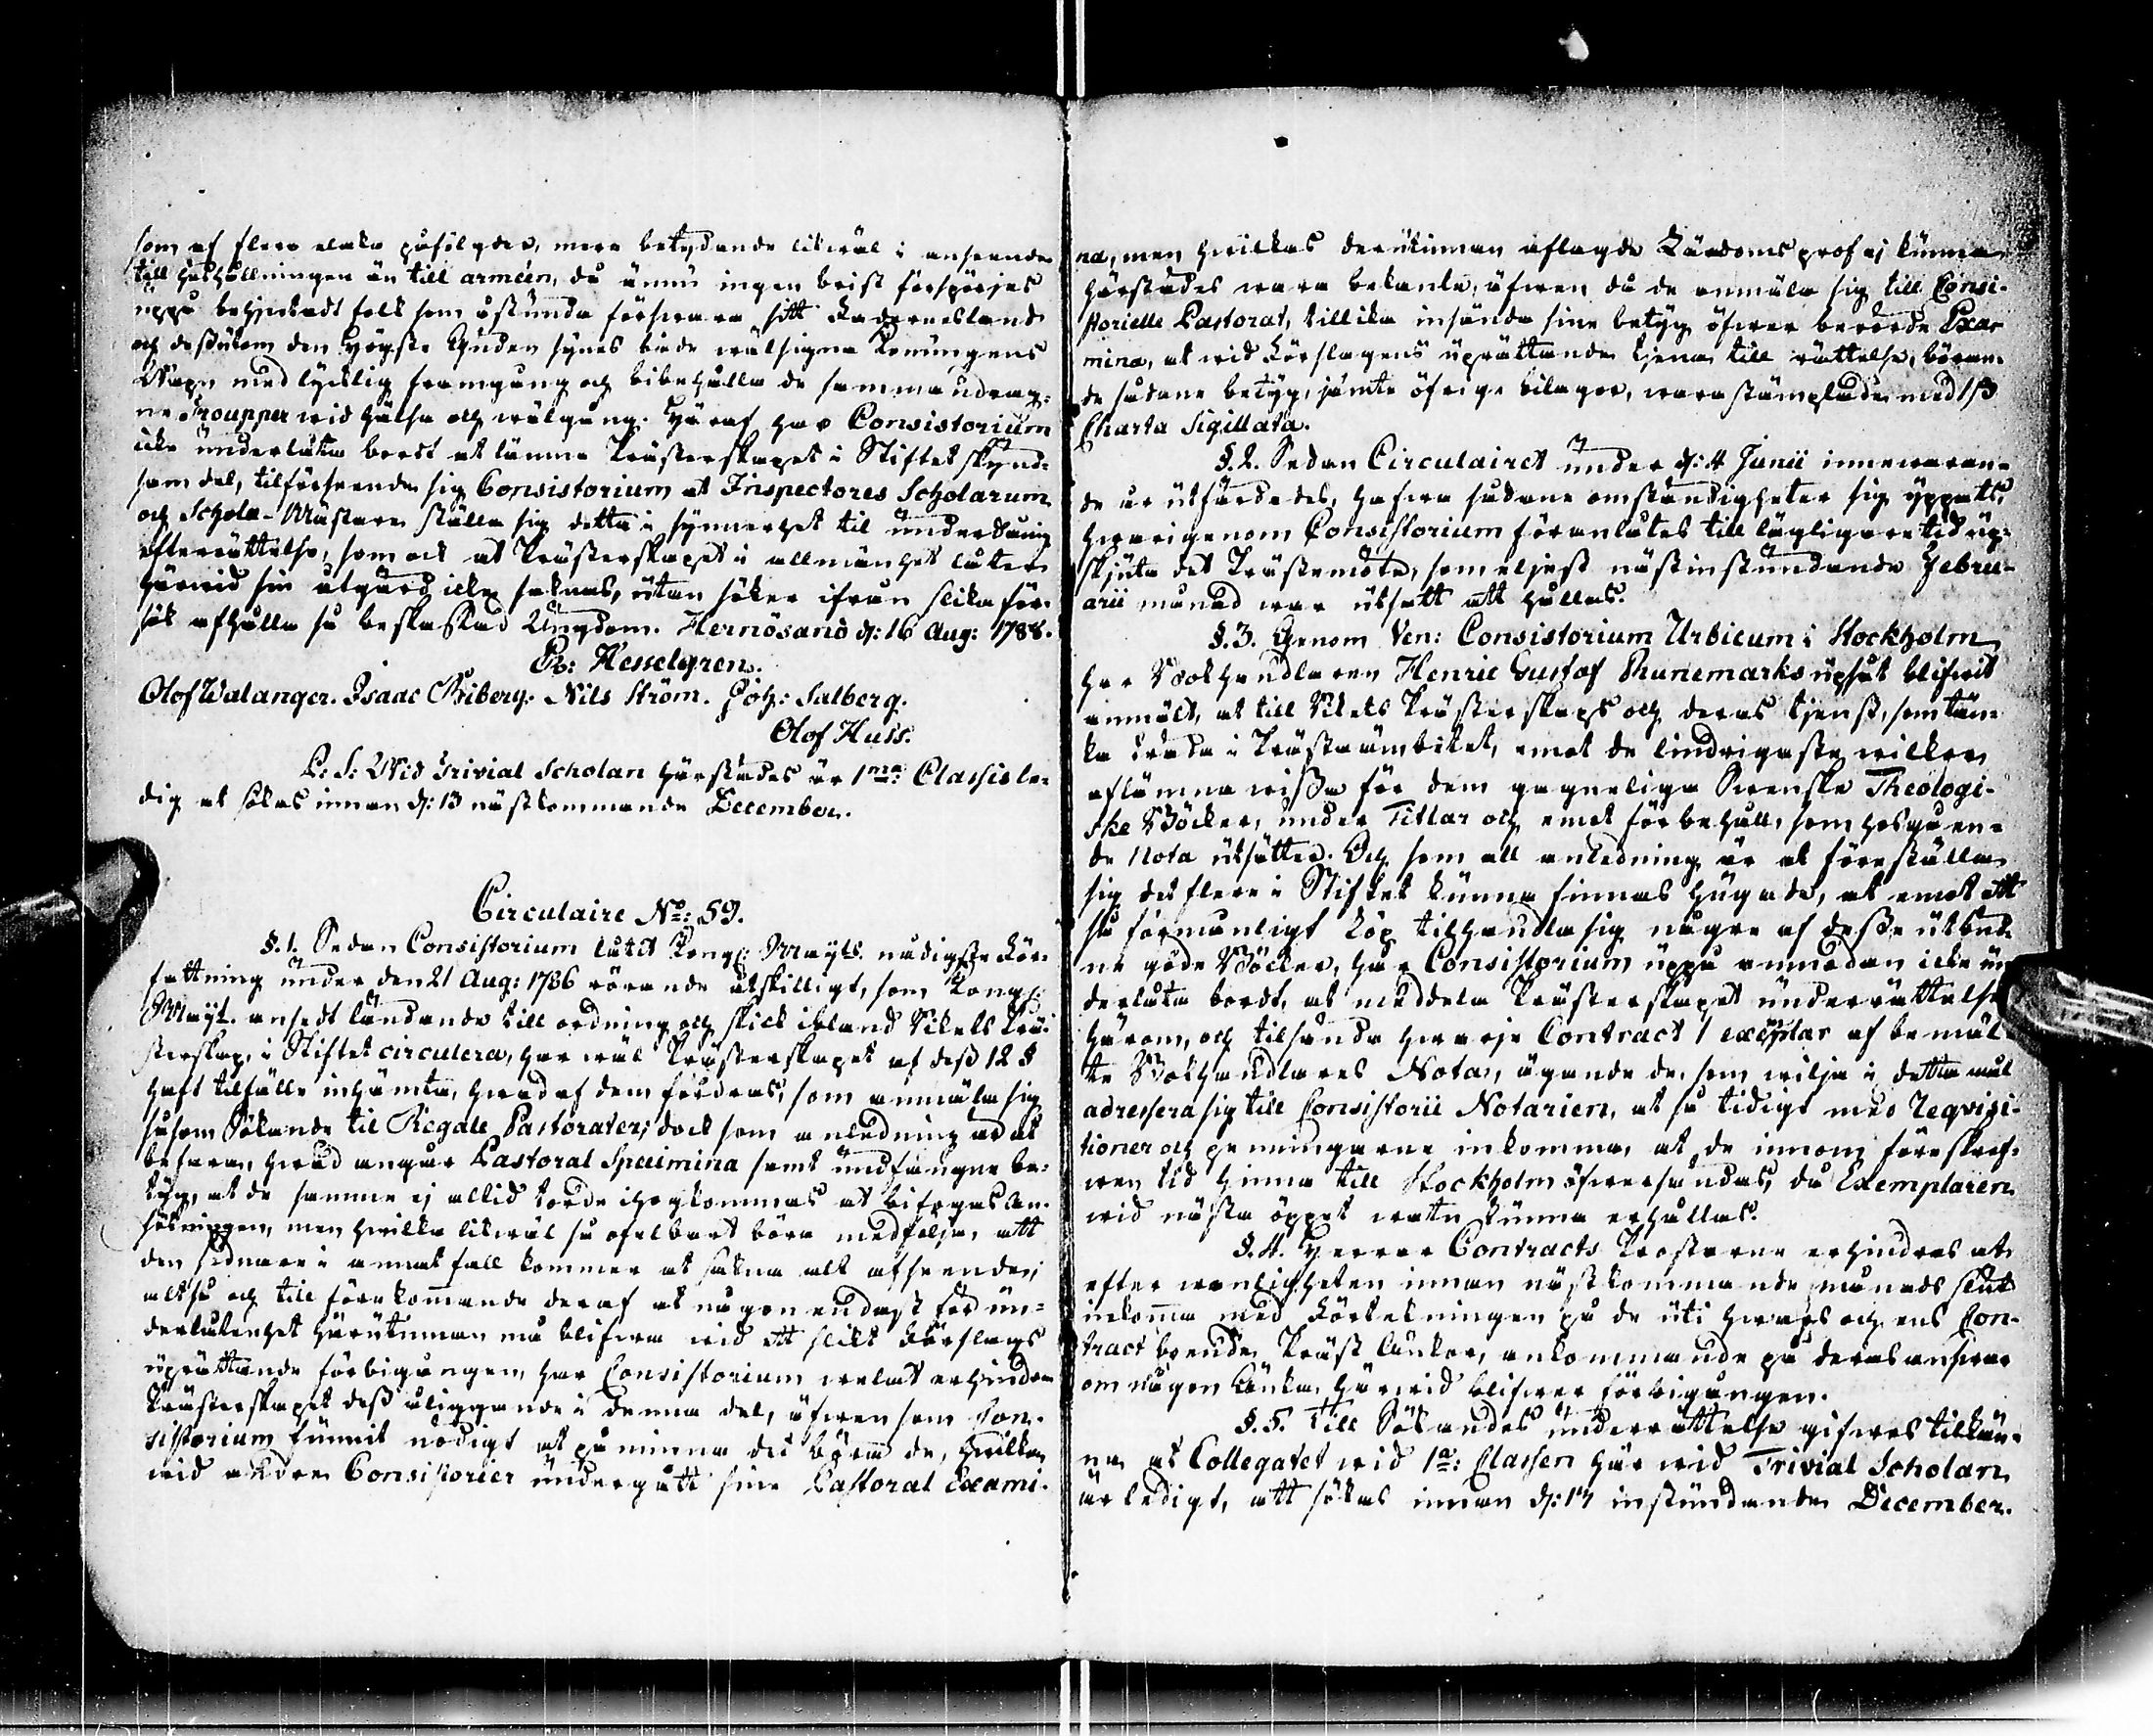 som af flere elaka påfölgder, mera betydande likwäl i anseende
till hushållningen än till arméen, då ännu ingen brist förspörjes
uppå behjertadt folk som åstunda förswara sitt Fädernesland
och dessutom den högste Guden synes både wälsigna Konungens
Wapn med lycklig framgång och bibehålla de sammandrag-
ne Troupper wid hälsa och wälgång. Häraf har Consistorium
icke underlåta bordt at lämna Prästerskapet i Stiftet skynd-
sam del, tilförseende sig Consistorium at Inspectores Scholarum
och Schola-Mästare ställa sig detta i synnerhet til underdånig
efterrättelse, som ock at Prästerskapet i allmänhet låter
härwid sin åtgärd icke saknas, utan söker ifrån slika för-
sök afhålla så beskaffad Ungdom. Hernösand d: 16 Aug: 1788.
Er: Hesselgren.
Olof Walanger. Isaac Riberg. Nils Ström. Joh: Salberg.
Olof Huss.
P. S. Wid Trivial Scholan härstädes är 1ma: Classis le-
dig at sökas innan d: 13 nästkommande December.
Circulaire No: 59.
§. 1. Sedan Consistorium låtit Kongl: Mayts. nådigste För-
fattning under den 21 Aug: 1786 rörande åtskilligt, som Kongl:
Mayt. ansedt ländande till ordning och skick ibland Rikets Prä-
sterskap, i Stiftet circulera, har wäl Prästerskapet af dess 12 §
haft tilfälle inhämta, hwad af dem fordras, som anmäla sig
såsom Sökande til Regale Pastorater; dock som anledning är at
befara, hwad angår Pastoral Specimina samt undfångne be-
tyg, at de samme ej altid torde ihogkommas at bifogas An-
sökningen, men hwilka likwäl så ofelbart böra medfölja, att
den sednare i annat fall kommer at sakna alt afseende;
altså och till förekommande deraf at någon endast för un-
derlåtenhet härutinnan må blifwa wid ett slikt Förslags
uprättande förbigången, har Consistorium welat erhindra
Prästerskapet dess åliggande i denna del, äfwen som Con-
sistorium funnit nödigt at påminna det böra de, hwilka
wid andra Consistorier undergått sine Pastoral Exami-
na, men hwilkas derutinnan aflagde Lärdomsprof ej kunna
härstädes wara bekante, äfwen då de anmäla sig till Consi-
storielle Pastorat, tillika insända sine betyg öfwer berörde Exa-
mina, at wid Förslagens uprättande tjena till rättelse, böran-
de sådane betyg, jämte öfrige bilagor, wara stämplade med 1 ß
Charta Sigillata.
§. 2. Sedan Circulairet under d: 4 Junii innewaran-
de år utfärdades, hafwa sådane omständigheter sig yppats,
hwarigenom Consistorium föranlåtes till lägligare tid up-
skjuta det Prästemöte, som eljest nästinstundande Febru-
arii månad war utsatt att hållas.
§. 3. Genom Ven: Consistorium Urbicum i Stockholm
har Bokhandlaren Henric Gustaf Runemarks upsåt blifwit
anmält, at till Rikets Prästerskaps och deras tjenst, som tän-
ka träda i Prästaämbetet, emot de lindrigaste wilkor
aflämna wissa för dem gagneliga Swenske Theologi-
ske Böcker, under Titlar och emot förbehåll, som hosgåen-
de Nota utsätter. Och som all anledning är at föreställa
sig det flere i Stiftet kunna finnas hugade, at emot ett
så förmånligt köp tilhandla sig någre af desse utbud-
ne gode Böcker, har Consistorium uppå anmodan icke un
derlåta bordt, at meddela Prästerskapet underrättelse
härom, och tilsända hwarje Contract 1 exemplar af bemäl-
te Bokhandlares Nota, ägande de, som wilja i detta mål
adressera sig till Consistorii Notarien, at så tidigt med Reqvisi-
tioner och penningarne inkomma, at de innom föreskref-
wen tid hinna till Stockholm öfwersändas, då Exemplaren
wid nästa öppet watn kunna erhållas.
§. 4. Herrar Contracts Prostarne erhindras at
efter wanligheten innan nästkommande månads slut
inkomma med Förtekningen på de uti hwars och ens Con-
tract boende Präst Änkor, ankommande på deras answar
om någon Änka härwid blifwer förbigången.
§. 5. Till Sökandes underrättelse gifwes tilkän-
na, at Collegatet wid 1a: Classen här wid Trivial Scholan
är ledigt, att sökas innan d: 13 instundande December.